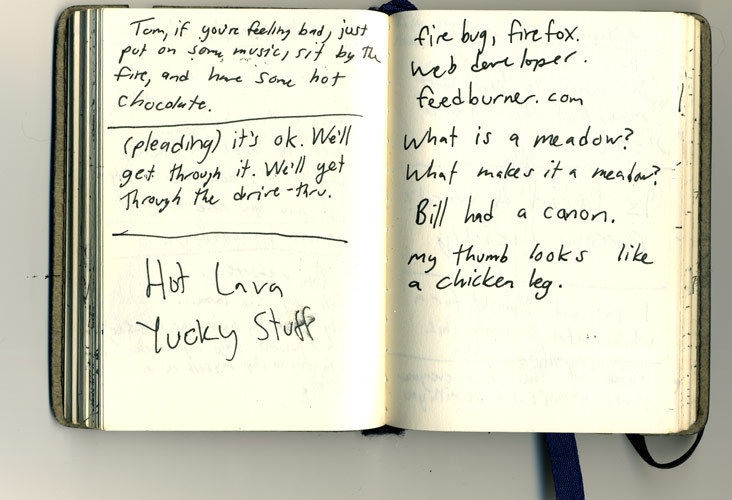 Tom, if you're feeling bad, just
put on some music, sit by the
fire, and have some hot
chocolate.
(pleading) it's ok. We'll
get through it. We'll get
Through the drive-thru.
Hot Lava
Yucky Stuff
fire bug, firefox.
web developer.
feedburner.com
What is a meadow?
What makes it a meadow?
Bill had a canon.
my thumb looks like
a chicken leg.